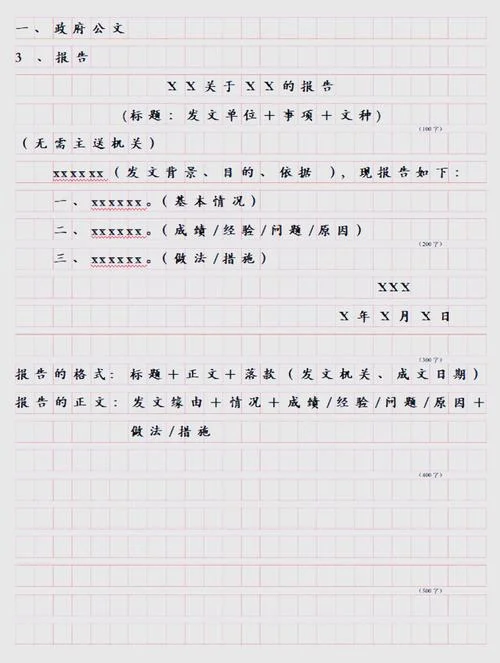 一、政府公文
3、报告
XX关于XX的报告
(标题：发文单位＋事项＋文种)
(100字)
(无需主送机关)
xxxxxx(发文背景、目的、依据 )，现报告如下：
一、xxxxxx。(基本情况)
二、xxxxxx。(成绩/经验/问题/原因)
(200字)
三、xxxxxx。(做法/措施)
XXX
X年X月X日
(300字)
报告的格式：标题＋正文＋落款(发文机关、成文日期)
报告的正文：发文缘由＋情况＋成绩/经验/问题/原因＋
做法/措施
(400字)
(500字)